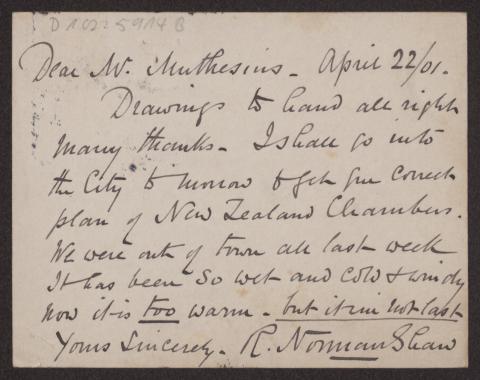 D1022 5914 B
Dear Mr. Muthesius - April 22/01.
Drawings to hand all right
Many thanks - I shall go into
the City tomorrow & get you correct
plan of New Zealand Chambers.
We were out of town all last week
It has been so wet and cold & windy
now it is too warm - but it will not last
Yours Sincerely - R. Norman Shaw